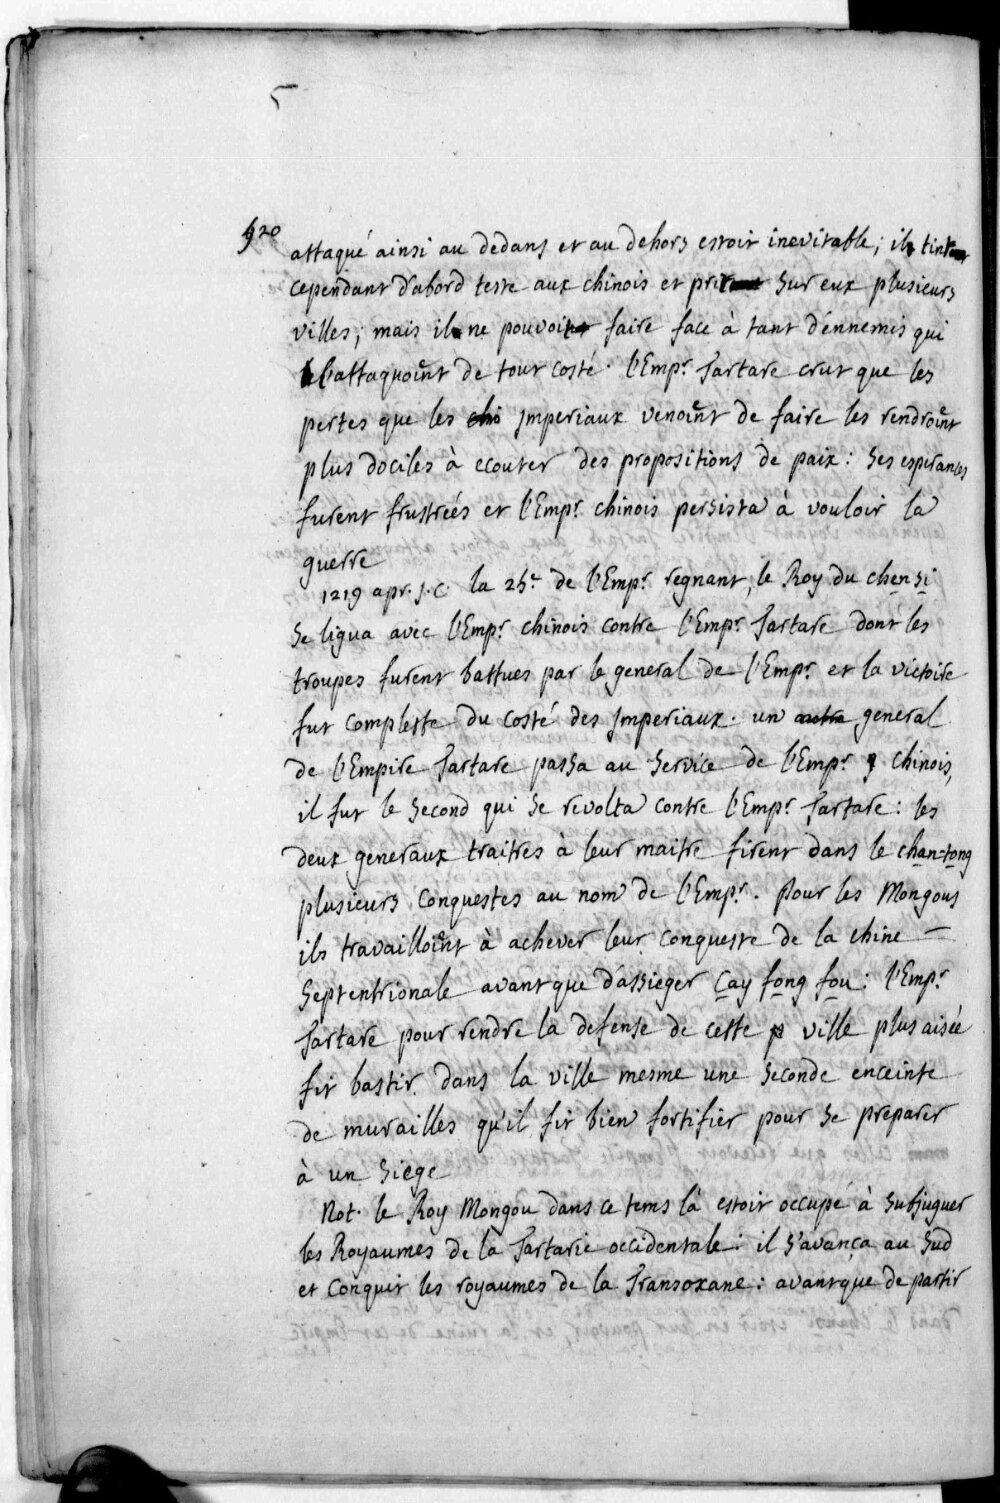 5
520
attaqué ainsi au dedans et au dehors estoit inevitable; il tint
cependant d'abord teste aux chinois et prit sur eux plusieurs
villes; mais il ne pouvoit faire face à tant d'énnemis qui
l'attaquoient de tout costé. l'Emp.r Tartare crut que les
pertes que les chi jmperiaux venoient de faire les rendroient
plus dociles à ecouter des propositions de paix: ses esperances
furent frustrées et l'Emp.r chinois persista à vouloir la
guerre
1219 apr. J. C. la 25e de l'Emp.r regnant, le Roy du chensi
se ligua avec l'Emp.r chinois contre l'Emp.r Tartare dont les
troupes furent battues par le general de l'Emp.r et la victoire
fut complette du costé des jmperiaux. un autre general
de l'Empire Tartare passa au service de l'Emp.r chinois,
il fut le second qui se revolta contre l'Emp.r Tartare: les
deux generaux traitres à leur maitre firent dans le chan-tong
plusieurs conquestes au nom de l'Emp.r. Pour les Mongous
ils travailloient à achever leur conqueste de la chine
Septentrionale avant que d'assieger Cay fong fou: l'Emp.r
Tartare pour rendre la defense de cette p ville plus aisée
fit bastir dans la ville mesme une seconde enceinte
de murailles qu'il fit bien fortifier pour se preparer
à un siege
Not. le Roy Mongou dans ce tems là estoit occupé à subjuguer
les Royaumes de la Tartarie occidentale: il s'avança au Sud
et conquit les royaumes de la Transoxane: avant que de partir